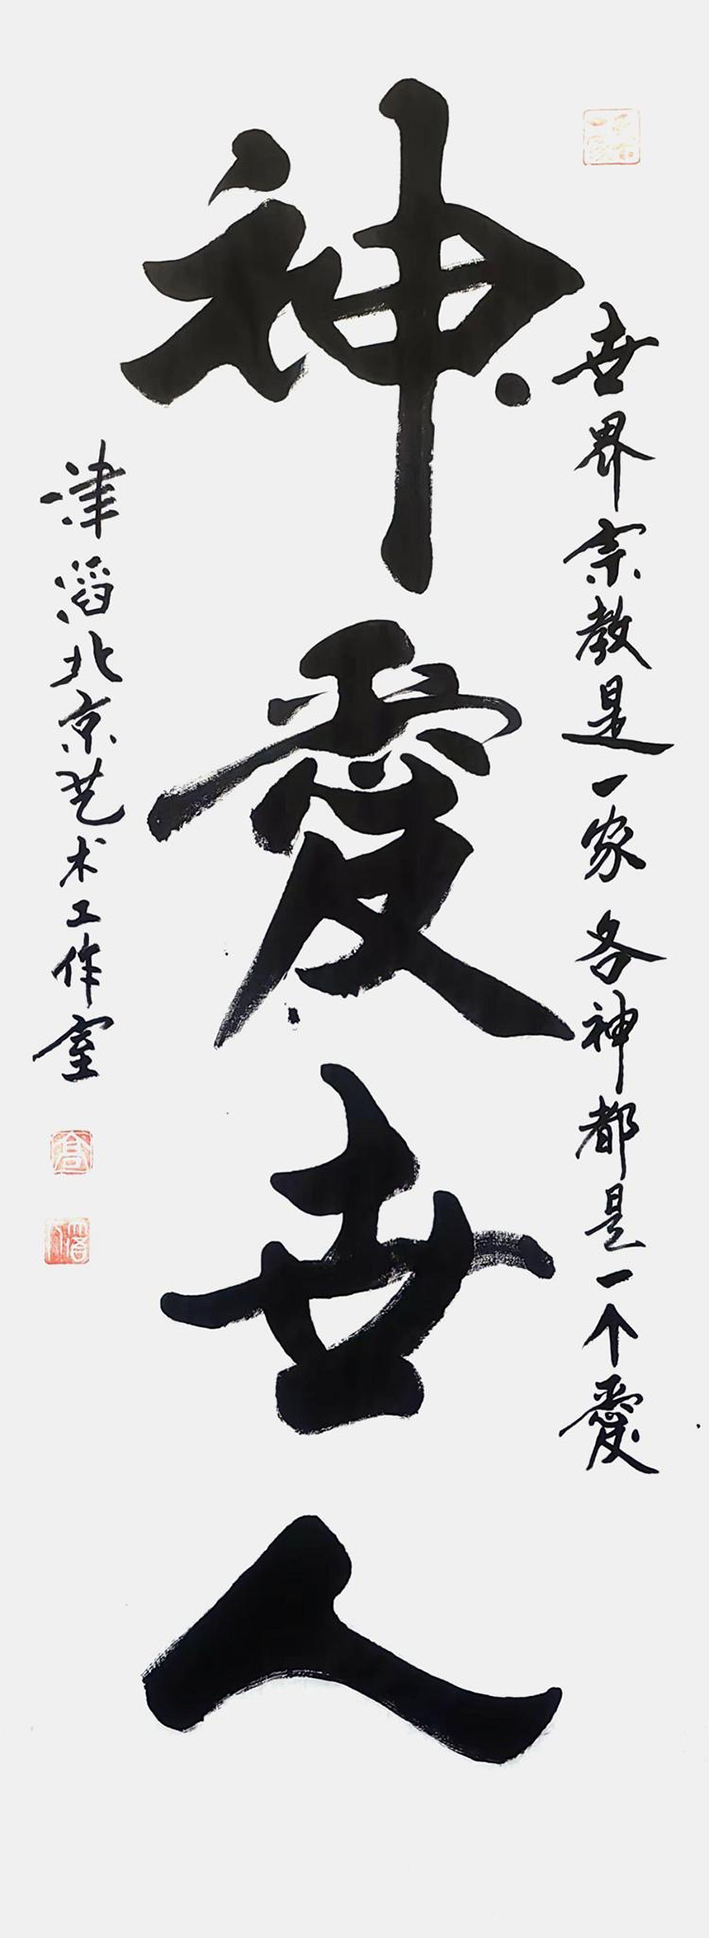 世界宗教是一家各神都是一个愛
神愛世人
津滔北京艺术工作室